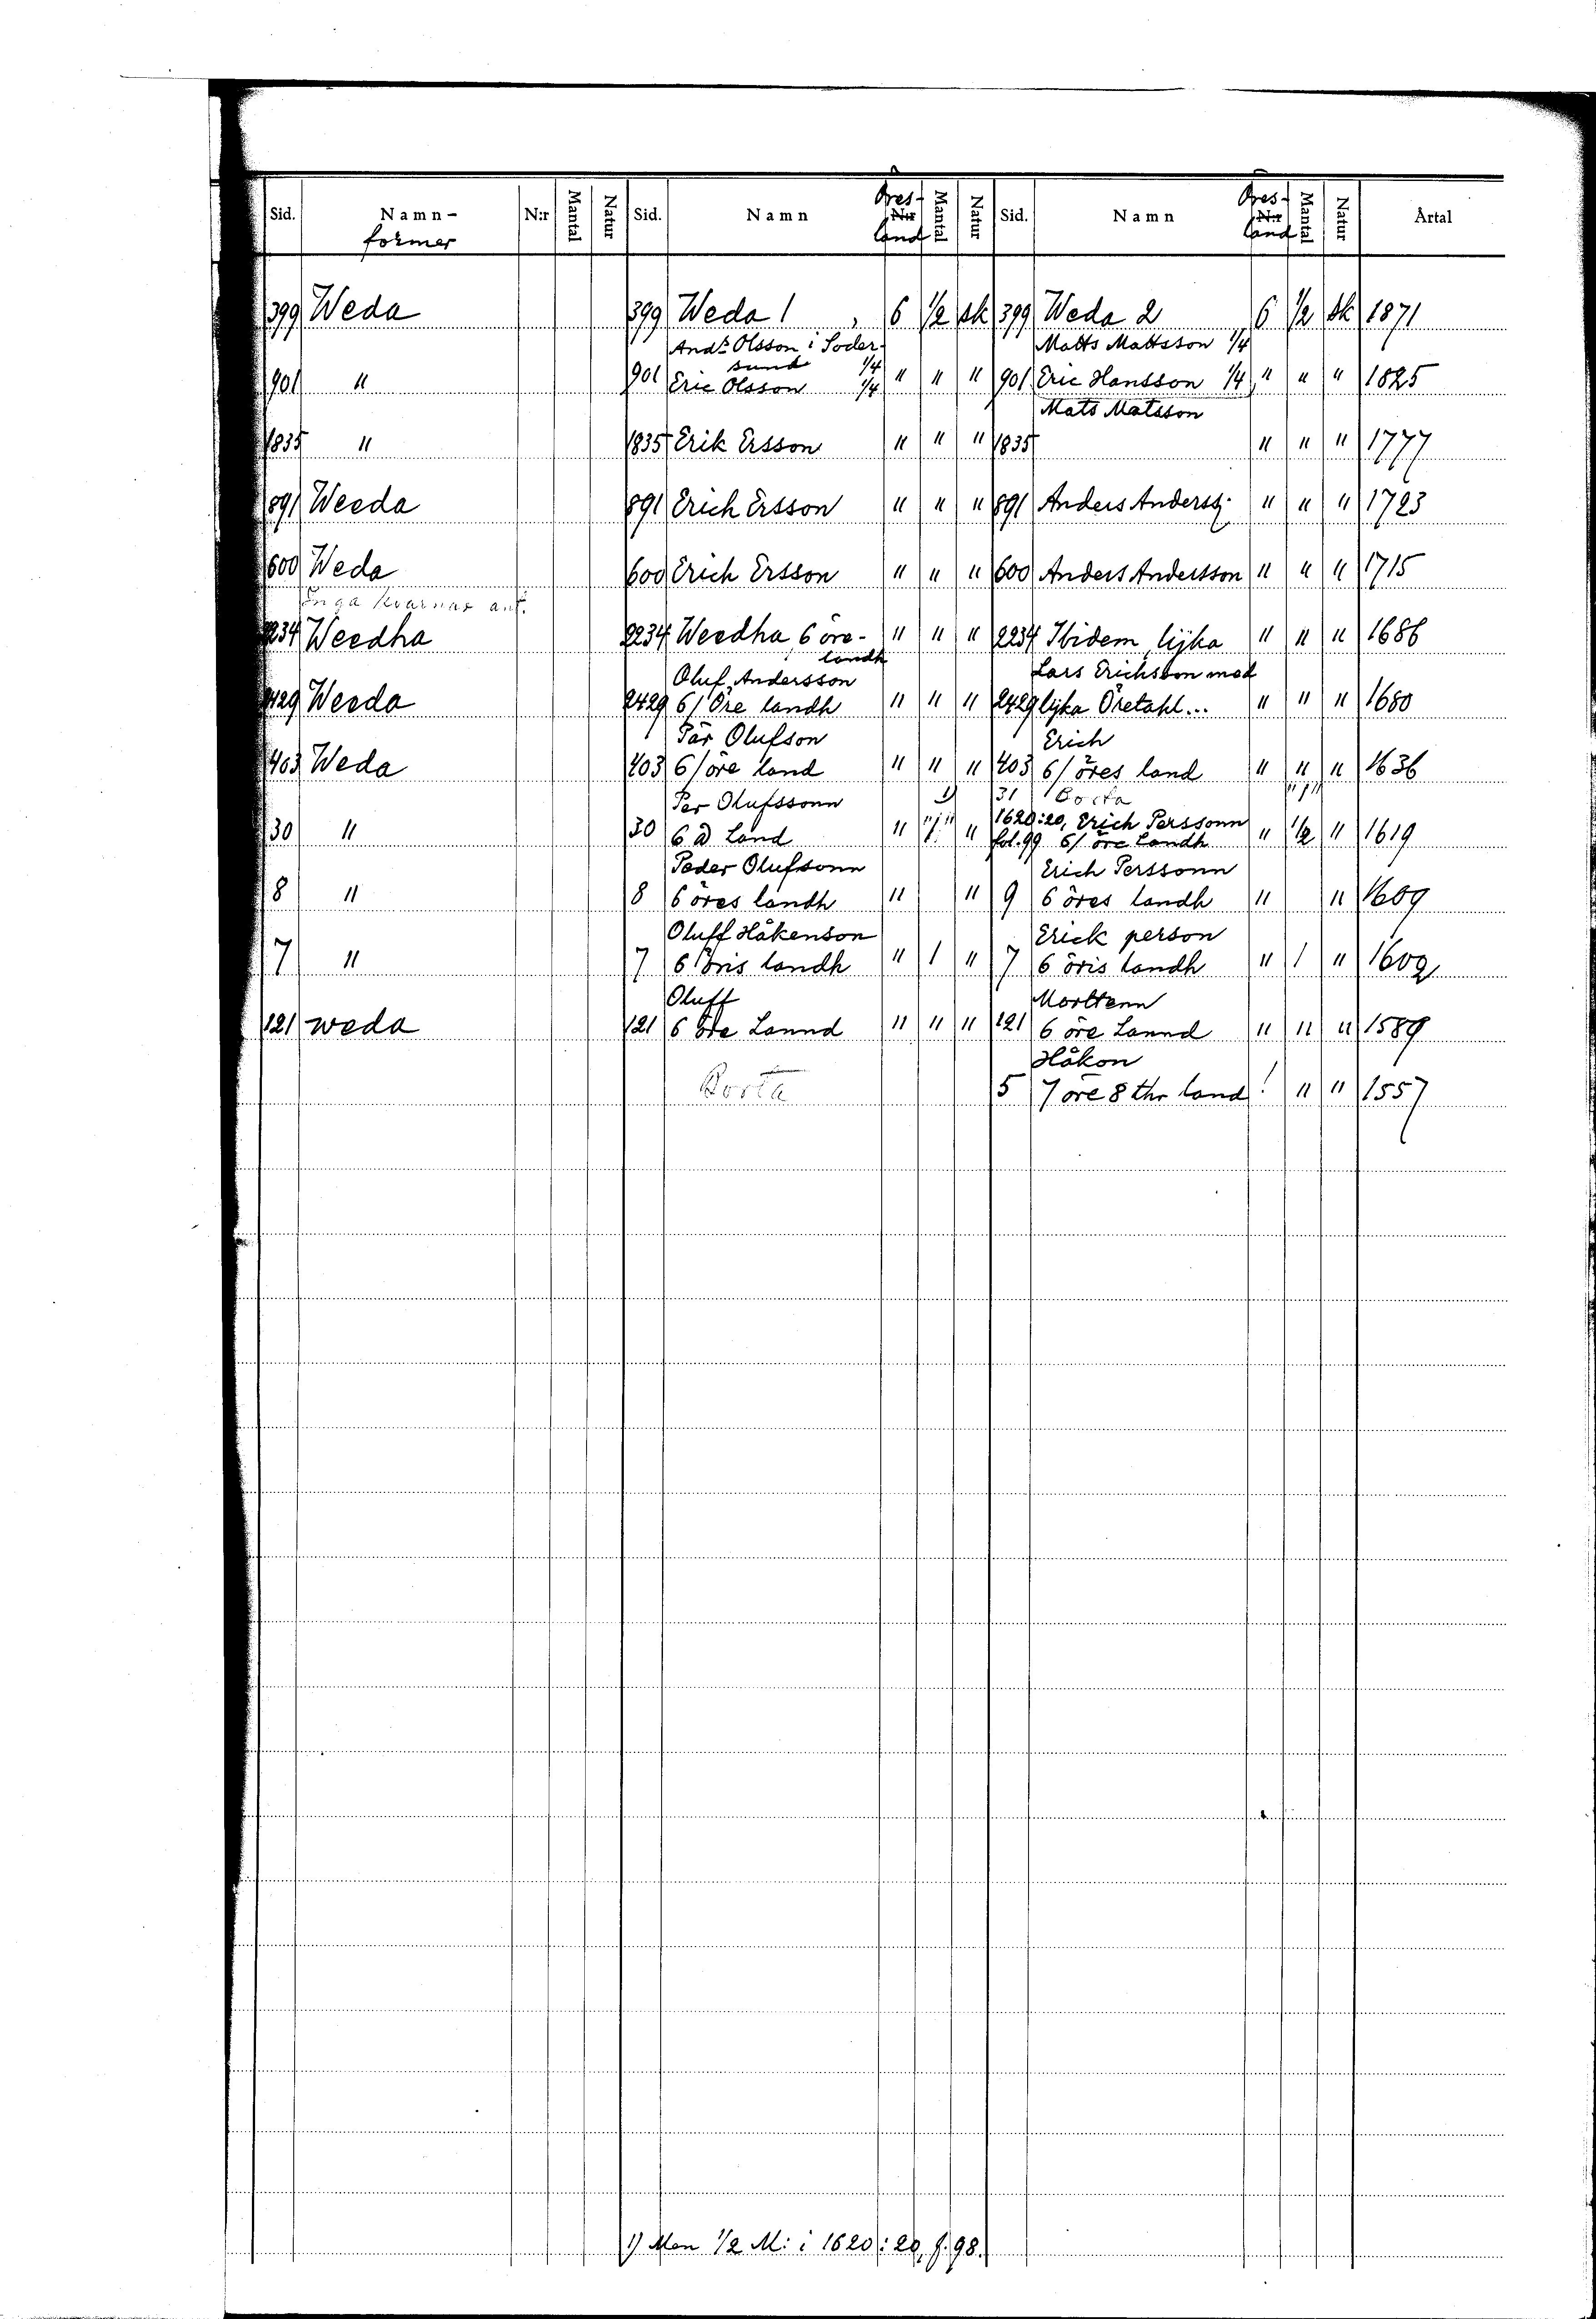 Sid. Namn- former N:r Mantal Natur Sid. Namn Öres- N:r land Mantal Natur Sid. Namn Öres- N:r land Mantal Natur Årtal
399 Weda 399 Weda 1 6 1/2 sk 399 Weda 2 6 1/2 sk 1871
And.s Olsson i Söder- Matts Mattsson 1/4
sund 1/4
901 " 901 Eric Olsson 1/4 " " " 901 Eric Hansson 1/4 " " " 1825
Mats Matsson
1835 " 1835 Erik Ersson " " " 1835 " " " 1777
891 Weeda 891 Erich Ersson " " " 891 Anders Anderss: " " " 1723
600 Weda 600 Erich Ersson " " " 600 Anders Andersson " " " 1715
Inga kvarnar anf.
2234 Weedha 2234 Weedha, 6 öre- " " " 2234 Ibidem, lijka " " " 1686
landh
Oluf Andersson Lars Erichsson med
2429 Weeda 2429 6/ Öre landh " " " 2429 lijka Öretahl... " " " 1680
Pär Olufson Erich
403 Weda 403 6/ öre land " " " 403 6/ öres land " " " 1636
Per Olufssonn 1) 31 Borta "/"
30 " 30 6 D Land " "/" " 1620:20, Erich Perssonn fol. 99 6/ öre Landh " 1/2 " 1619
Peder Olufsonn Erich Perssonn
8 " 8 6 öres landh " " 9 6 öres landh " " 1609
Oluff Håkenson Erick person
7 " 7 6 öris landh " 1 " 7 6 öris landh " 1 " 1602
Oluff Morttenn
121 weda 121 6 öre Lannd " " " 121 6 öre Lannd " " " 1589
Håkon
Borta 5 7 öre 8 thr land ! " " 1557
1) Men 1/2 M: i 1620:20, f. 98.